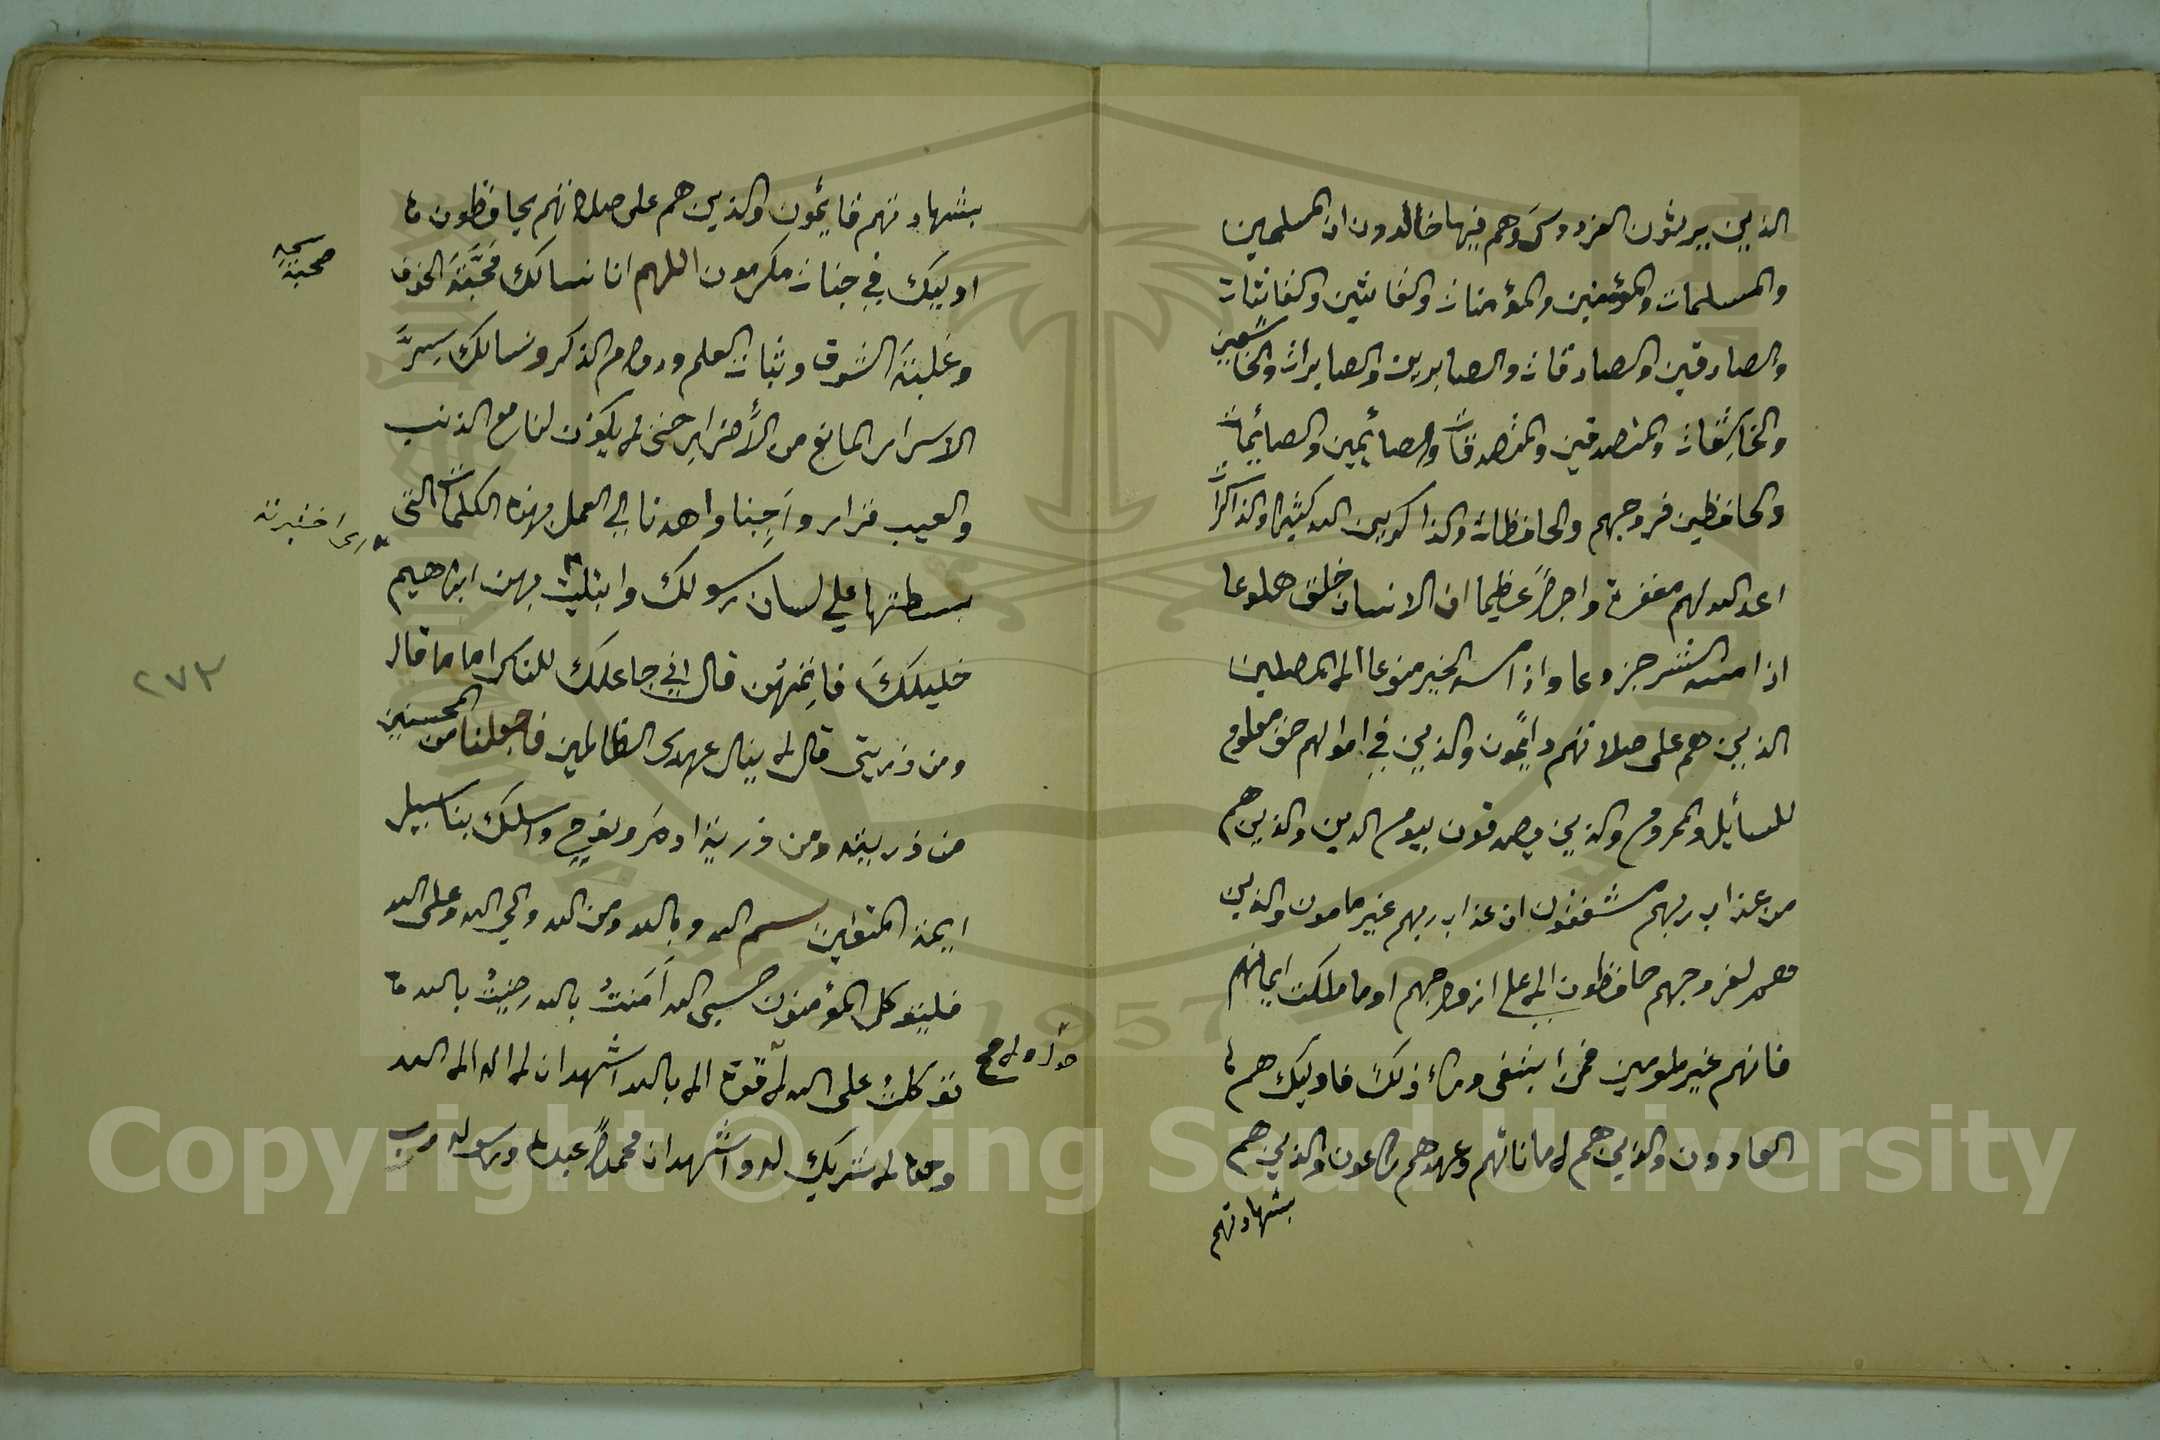 الذين يرثون الفردوس وهم فيها خالدون ان المسلمين
والمسلمات والمؤمنين والمؤمنات والقانتين والقانتات
والصادقين والصادقات والصابرين والصابرات والخاشعين
والخاشعات والمتصدقين والمتصدقات والصائمين والصائمات
والحافظين فروجهم والحافظات والذاكرين الله كثيرا والذاكرات
اعد الله لهم مغفرة واجرًا عظيما ان الانسان خلق هلوعا
اذا مسه الشر جزوعا واذا مسه الخير منوعا الا المصلين
الذين هم على صلاتهم دايمون والذين في اموالهم حق معلوم
للسائل والمحروم والذين يصدقون بيوم الدين والذين هم
من عذاب ربهم مشفقون ان عذاب ربهم غير مامون والذين
هم لفروجهم حافظون الا على ازواجهم او ما ملكت ايمانهم
فانهم غير ملومين فمن ابتغى وراء ذلك فاوليك هم
العادون والذين هم لاماناتهم وعهدهم راعون والذين هم
بشهادتهم
بشهادتهم قايمون والذين هم على صلاتهم يحافظون
اوليك في جنات مكرمون اللهم انا نسالك محبَّة الخوف
صحبة
وغلبة الشوق وثبات العلم ودوام الذكر ونسالك سرَّ
الاسرار المانع من الأضرار حتى لا يكون لنا مع الذنب
والعيب قرار واجبنا واهدنا الي العمل بهذه الكلمات التى
بسطتها علي لسان رسولك وابتليت بهن ابراهيم
خليلك فاتمهن قال اني جاعلك للناس اماما قال
٢٧٣
ومن ذريتي قال لا ينال عهدى الظالمين فاجعلنا من المحسنين
من ذريته ومن ذرية ادم ونوح واسلك بنا سبيل
ايمة المتقين بسم الله وبالله ومن الله والي الله وعلى الله
فليتوكل المؤمنون حسبي الله آمنت بالله رضيت بالله
توكلت على الله لا قوة الا بالله اشهد ان لا اله الا الله
حول ولا صح
وحده لا شريك له واشهد ان محمدًا عبده ورسوله رب
Copyright © King Saud University
1957